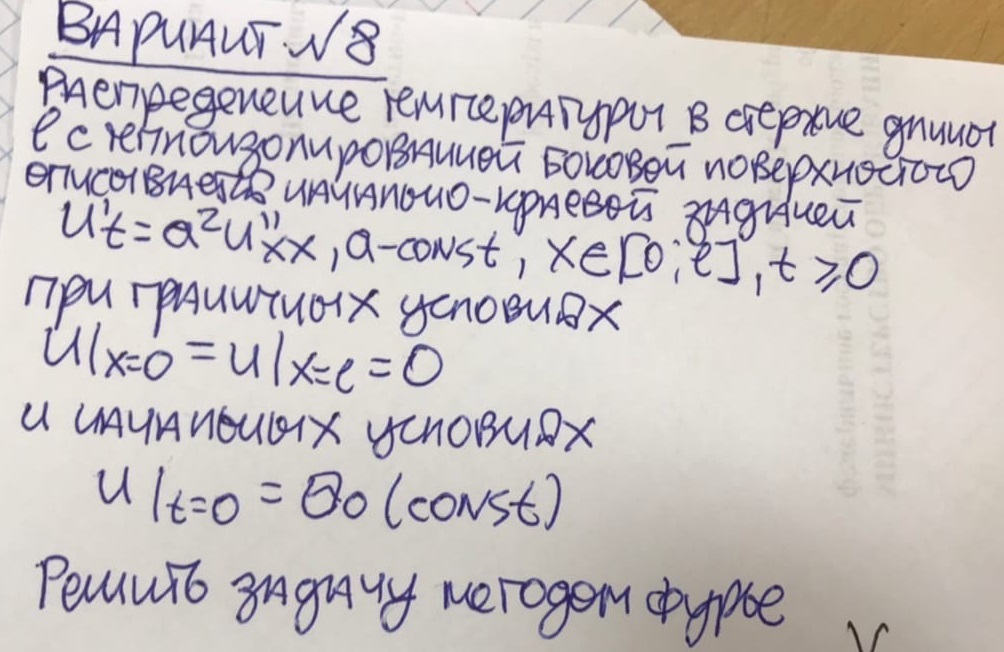 Вариант №8
Распределение температуры в стержне длины
l с теплоизолированной боковой поверхностью
описывается начально-краевой задачей
u't = a²u''xx, a-const, x∈[0;l], t≥0
при граничных условиях
u|x=0 = u|x=l = 0
и начальных условиях
u|t=0 = θ₀ (const)
Решить задачу методом фурье